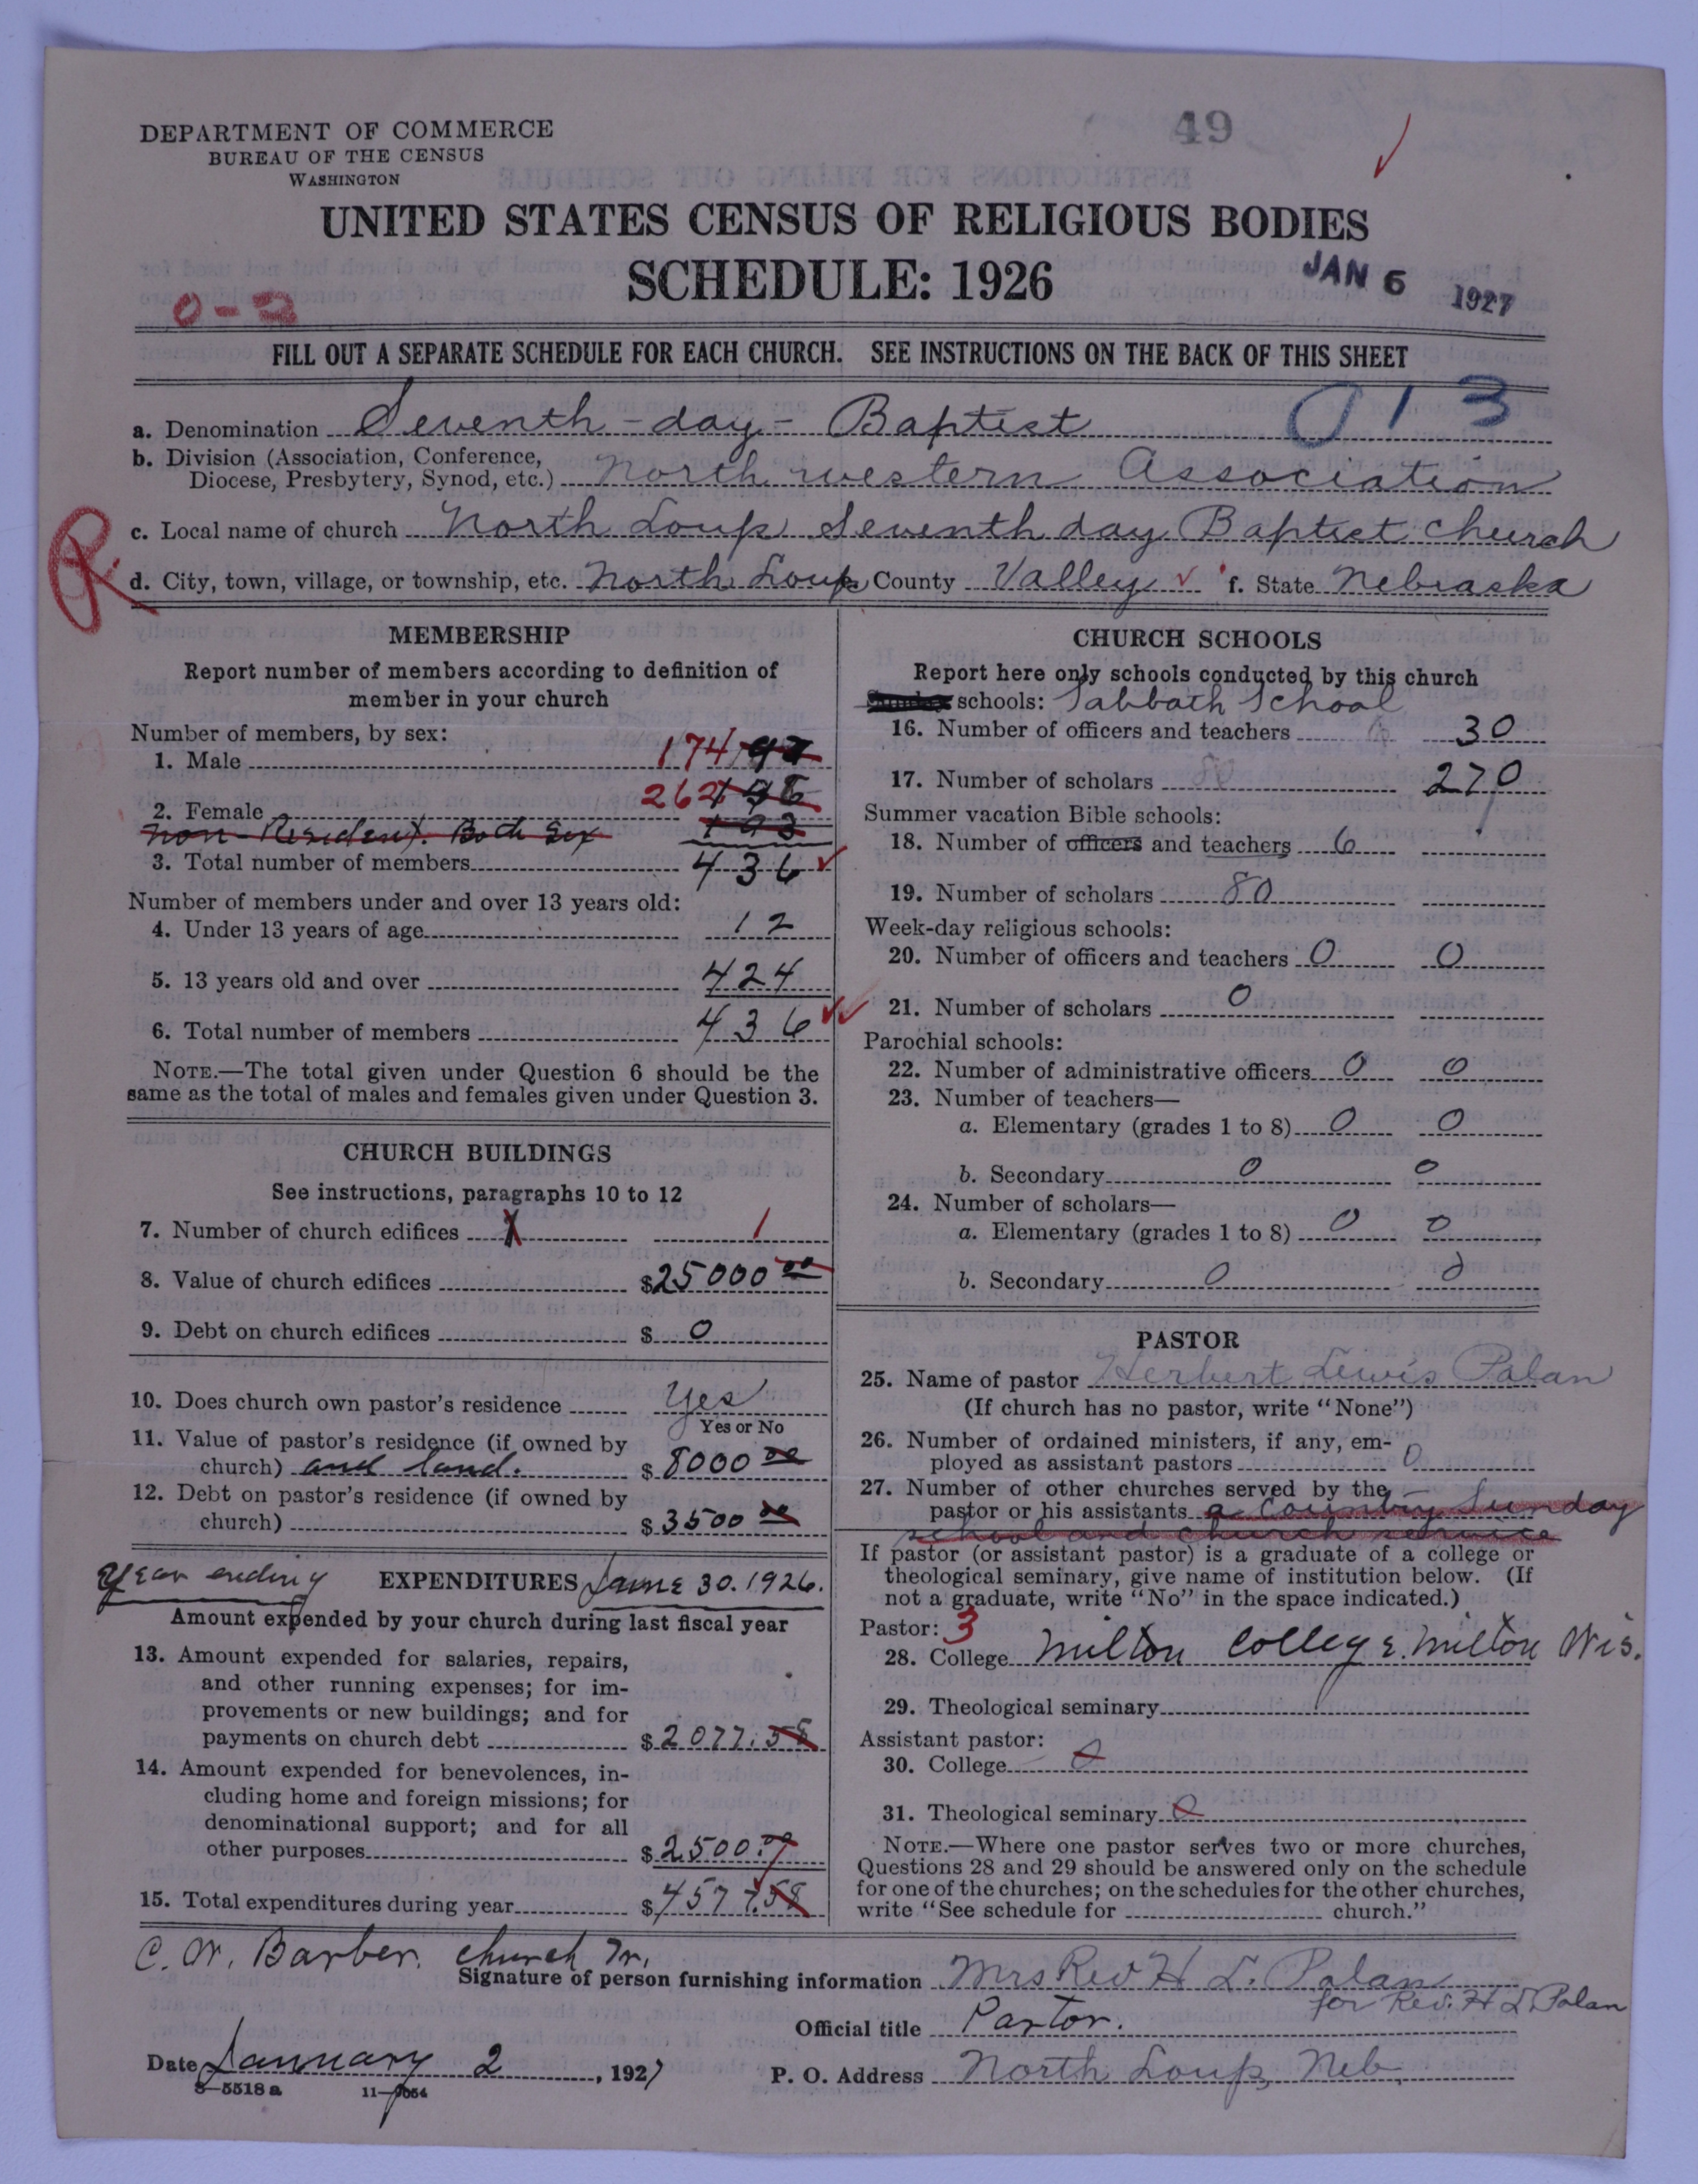 49
DEPARTMENT OF COMMERCE
BUREAU OF THE CENSUS
WASHINGTON
UNITED STATES CENSUS OF RELIGIOUS BODIES
SCHEDULE: 1926
JAN 6 1927
0-2
FILL OUT A SEPARATE SCHEDULE FOR EACH CHURCH. SEE INSTRUCTIONS ON THE BACK OF THIS SHEET
a. Denomination Seventh-day-Baptist 013
b. Division (Association, Conference,
Diocese, Presbytery, Synod, etc.) North western Association
c. Local name of church North Loup Seventh day Baptist Church
R
d. City, town, village, or township, etc. North Loup County Valley f. State Nebraska
MEMBERSHIP
Report number of members according to definition of
member in your church
Number of members, by sex:
1. Male 174
2. Female 262
Non-Resident. Both Sex
3. Total number of members 436
Number of members under and over 13 years old:
4. Under 13 years of age 12
5. 13 years old and over 424
6. Total number of members 436
NOTE.—The total given under Question 6 should be the
same as the total of males and females given under Question 3.
CHURCH BUILDINGS
See instructions, paragraphs 10 to 12
7. Number of church edifices 1 1
8. Value of church edifices $25000 00
9. Debt on church edifices $ 0
10. Does church own pastor's residence Yes
Yes or No
11. Value of pastor's residence (if owned by
church) and land. $ 8000 00
12. Debt on pastor's residence (if owned by
church) $ 3500 00
Year ending EXPENDITURES June 30. 1926.
Amount expended by your church during last fiscal year
13. Amount expended for salaries, repairs,
and other running expenses; for im-
provements or new buildings; and for
payments on church debt $ 2077.58
14. Amount expended for benevolences, in-
cluding home and foreign missions; for
denominational support; and for all
other purposes $ 2500.00
15. Total expenditures during year $ 4577.58
CHURCH SCHOOLS
Report here only schools conducted by this church
Sunday schools: Sabbath School
16. Number of officers and teachers 30
17. Number of scholars 80 270
Summer vacation Bible schools:
18. Number of officers and teachers 6
19. Number of scholars 80
Week-day religious schools:
20. Number of officers and teachers 0 0
21. Number of scholars 0
Parochial schools:
22. Number of administrative officers 0 0
23. Number of teachers—
a. Elementary (grades 1 to 8) 0 0
b. Secondary 0 0
24. Number of scholars—
a. Elementary (grades 1 to 8) 0 0
b. Secondary 0 0
PASTOR
25. Name of pastor Herbert Lewis Polan
(If church has no pastor, write "None")
26. Number of ordained ministers, if any, em-
ployed as assistant pastors 0
27. Number of other churches served by the
pastor or his assistants a country Sunday
school and church service
If pastor (or assistant pastor) is a graduate of a college or
theological seminary, give name of institution below. (If
not a graduate, write "No" in the space indicated.)
Pastor: 3
28. College Milton College. Milton Wis.
29. Theological seminary
Assistant pastor:
30. College 0
31. Theological seminary 0
NOTE.—Where one pastor serves two or more churches,
Questions 28 and 29 should be answered only on the schedule
for one of the churches; on the schedules for the other churches,
write "See schedule for church."
C. W. Barber. church Tr.
Signature of person furnishing information Mrs Rev H L. Polan
for Rev. H L Polan
Official title Pastor.
Date January 2, 1927 P. O. Address North Loup, Neb.
8—5518 a 11—9054